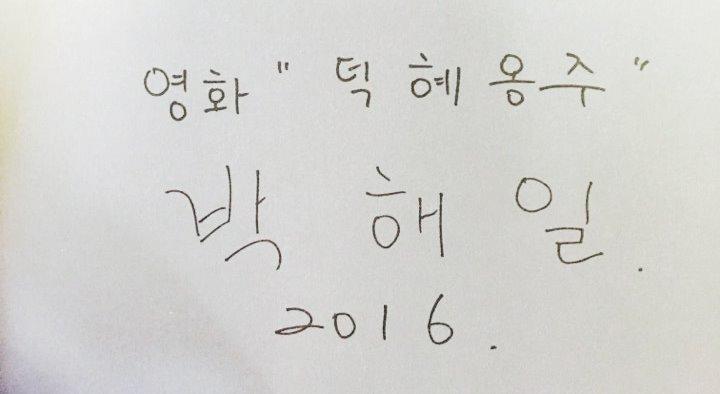 영화 " 덕혜옹주 "
박 해 일.
2016.